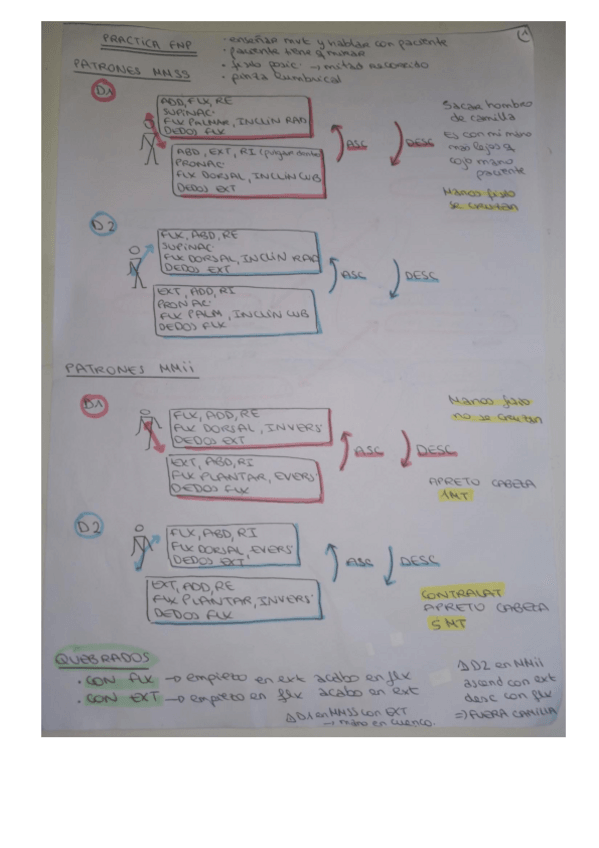 PRACTICA FNP
· enseñar mvt y hablar con paciente
· paciente tiene q mirar
· fisio posic → mitad recorrido
· pinza lumbrical
1
PATRONES MMSS
D1
ADD, FLX, RE
SUPINAC·
FLX PALMAR, INCLIN RAD
DEDOS FLX
ABD, EXT, RI (pulgar dentro)
PRONAC·
FLX DORSAL, INCLIN CUB
DEDOS EXT
ASC
DESC
Sacar hombro
de camilla
Es con mi mano
más lejos q
cojo mano
paciente
Manos fisio
se cruzan
D2
FLX, ABD, RE
SUPINAC·
FLX DORSAL, INCLIN RAD
DEDOS EXT
EXT, ADD, RI
PRONAC·
FLX PALM, INCLIN CUB
DEDOS FLX
ASC
DESC
PATRONES MMii
D1
FLX, ADD, RE
FLX DORSAL, INVERS·
DEDOS EXT
EXT, ABD, RI
FLX PLANTAR, EVERS·
DEDOS FLX
ASC
DESC
Manos fisio
no se cruzan
APRETO CABEZA
1MT
D2
FLX, ABD, RI
FLX DORSAL, EVERS·
DEDOS EXT
EXT, ADD, RE
FLX PLANTAR, INVERS·
DEDOS FLX
ASC
DESC
CONTRALAT
APRETO CABEZA
5 MT
QUEBRADOS
· CON FLX → empiezo en ext acabo en flx
· CON EXT → empiezo en flx acabo en ext
Δ D1 en MMSS con EXT
→ mano en cuenco.
Δ D2 en MMii
ascend con ext
desc con flx
⇒ FUERA CAMILLA